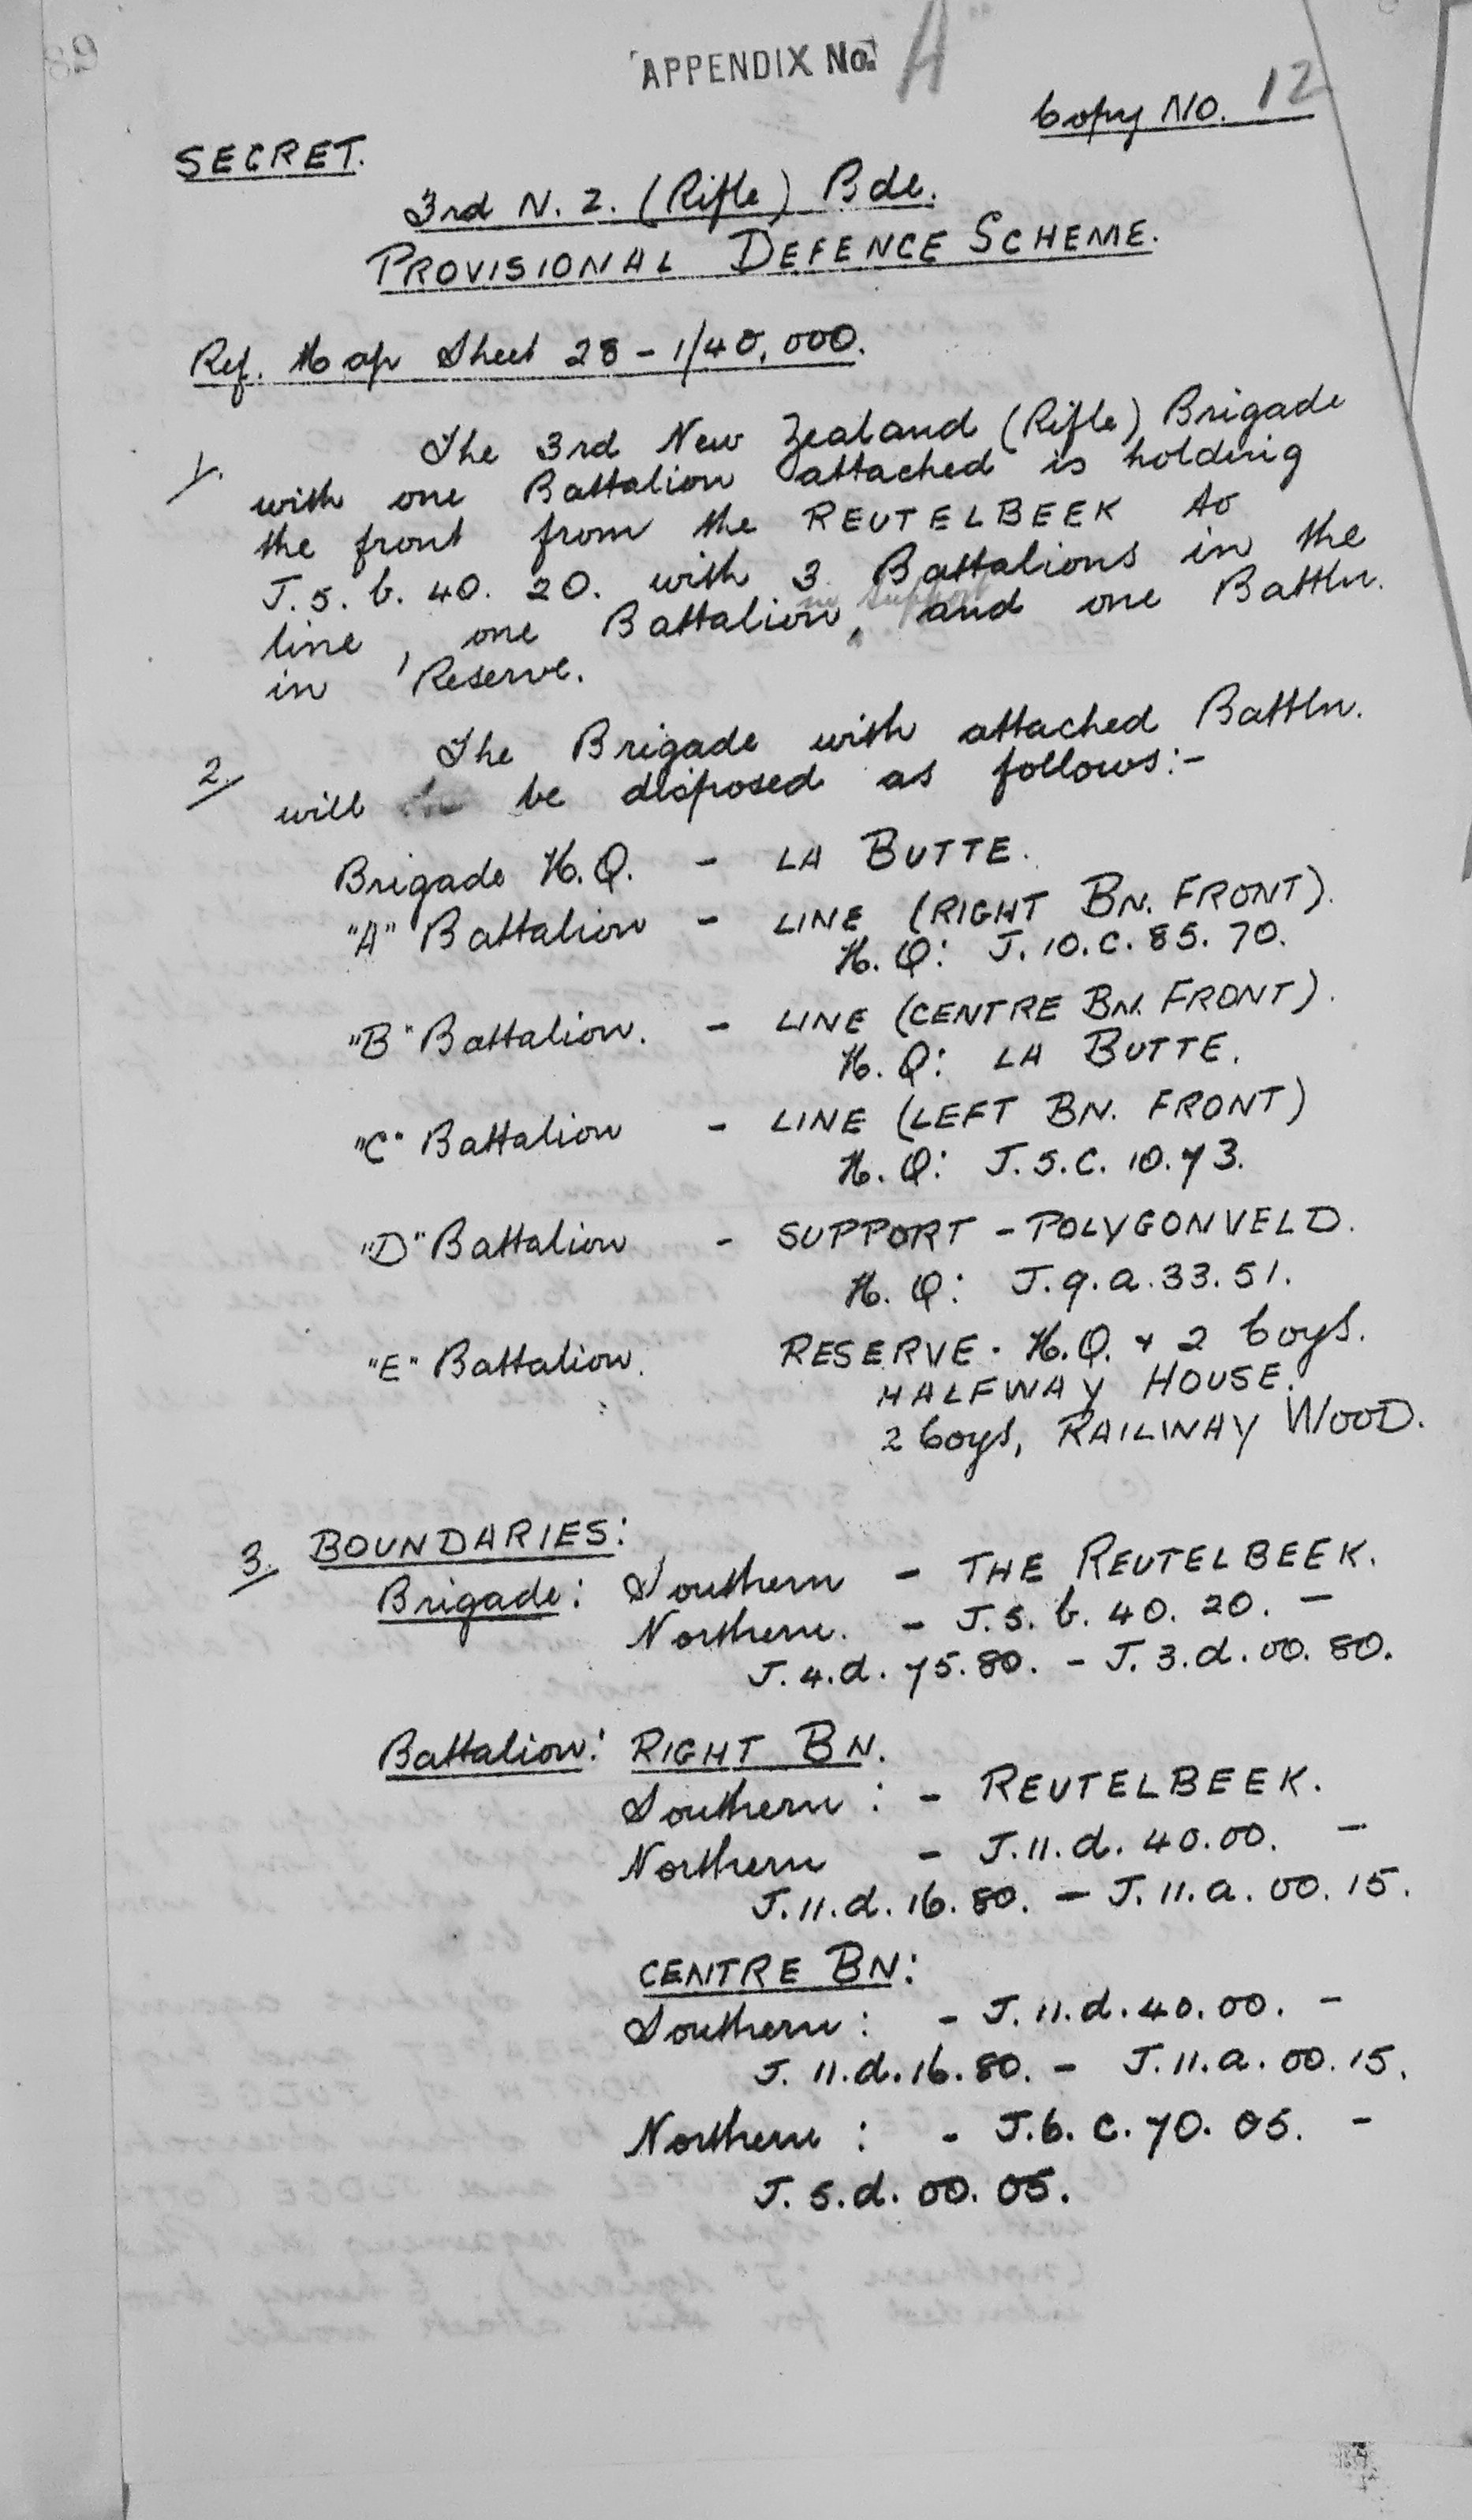 APPENDIX No. A
Copy No. 12
SECRET.
3rd N. Z. (Rifle) Bde.
PROVISIONAL DEFENCE SCHEME.
Ref. Map Sheet 28 - 1/40,000.
1/. The 3rd New Zealand (Rifle) Brigade
with one Battalion attached is holding
the front from the REUTELBEEK to
J. 5. b. 40. 20. with 3 Battalions in the
line, one Battalion in support, and one Battln.
in Reserve.
2/ The Brigade with attached Battln.
will be disposed as follows:-
Brigade H.Q. - LA BUTTE.
"A" Battalion - LINE (RIGHT BN. FRONT).
H. Q: J. 10. C. 85. 70.
"B" Battalion. - LINE (CENTRE BN. FRONT).
H. Q: LA BUTTE.
"C" Battalion - LINE (LEFT BN. FRONT)
H. Q: J. 5. C. 10. 73.
"D" Battalion - SUPPORT - POLYGONVELD.
H. Q: J. 9. a. 33. 51.
"E" Battalion. RESERVE. H.Q. + 2 Coys.
HALFWAY HOUSE.
2 Coys, RAILWAY WOOD.
3/. BOUNDARIES:
Brigade: Southern - THE REUTELBEEK.
Northern. - J. 5. b. 40. 20. -
J. 4. d. 75. 80. - J. 3. d. 00. 80.
Battalion: RIGHT BN.
Southern: - REUTELBEEK.
Northern - J. 11. d. 40. 00. -
J. 11. d. 16. 80. - J. 11. a. 00. 15.
CENTRE BN:
Southern: - J. 11. d. 40. 00. -
J. 11. d. 16. 80. - J. 11. a. 00. 15.
Northern: - J. 6. C. 70. 05. -
J. 5. d. 00. 05.